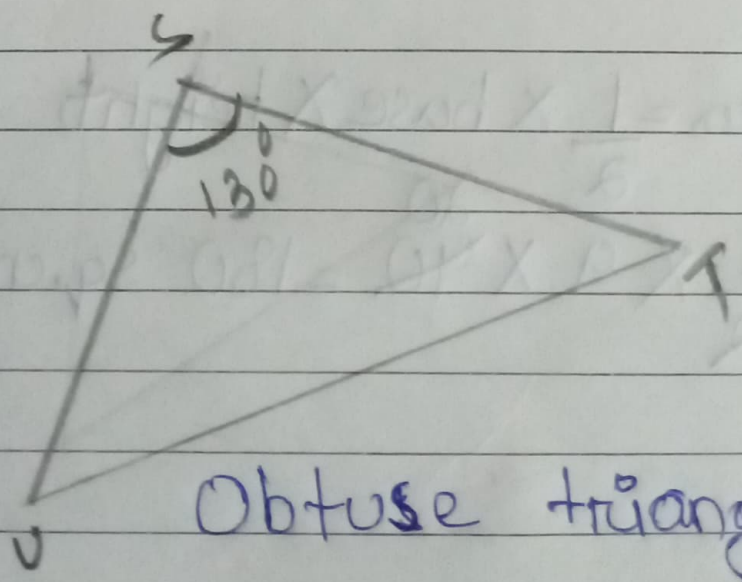 S
130°
T
U
Obtuse triang